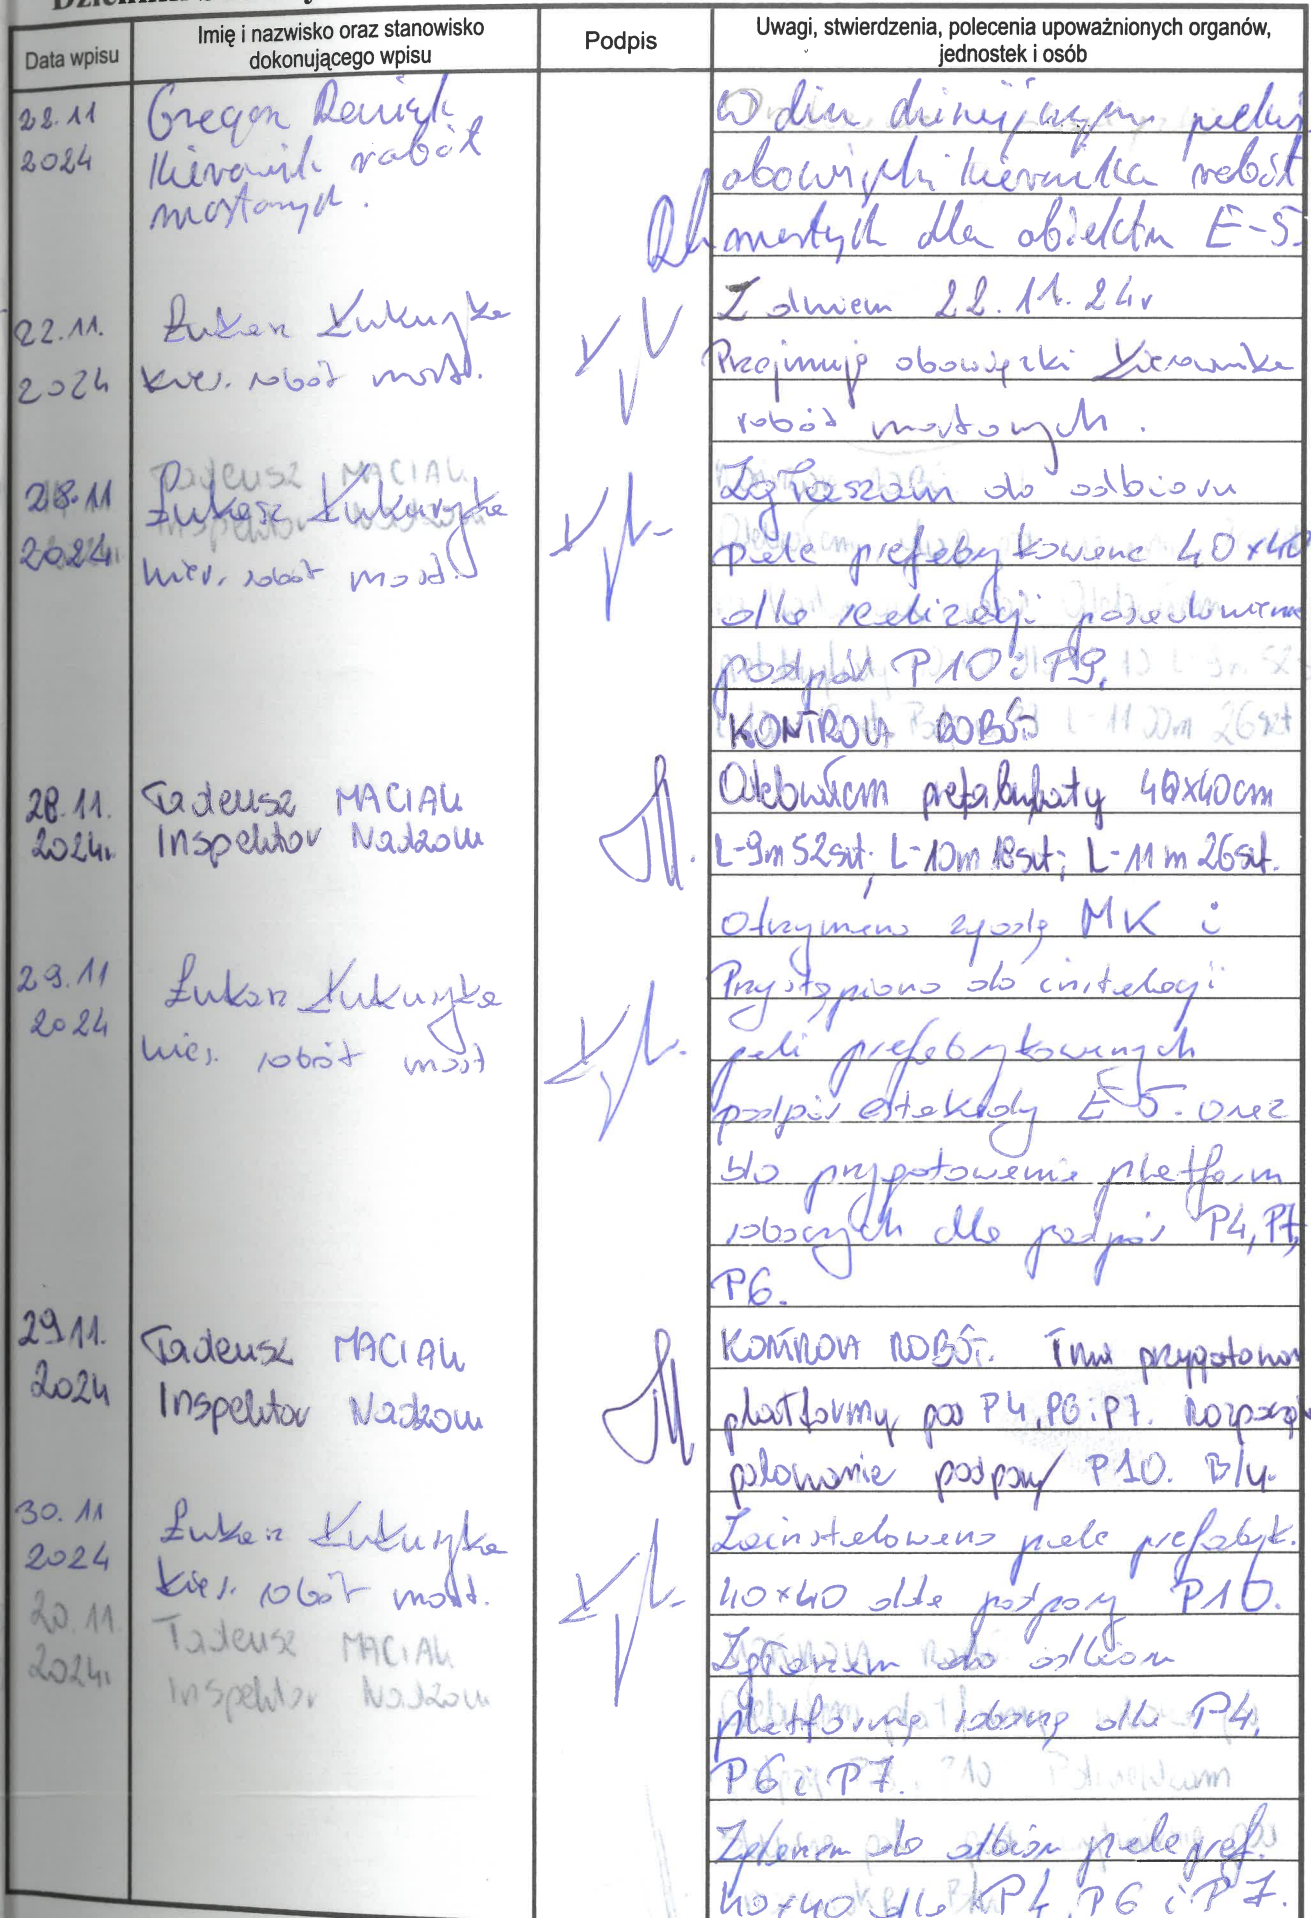 Data wpisu
Imię i nazwisko oraz stanowisko
dokonującego wpisu
Podpis
Uwagi, stwierdzenia, polecenia upoważnionych organów,
jednostek i osób
22.11
2024
Kierownik robót
mostowych.
W dniu dzisiejszym
obowiązki kierownika robót
mostych dla obiektu E-5.
22.11.
2024
Łukasz
kier. robót most.
Z dniem 22.11.24r
Przejmuję obowiązki kierownika
robót mostowych.
28.11
2024
Łukasz
kier. robót most.
Zgłaszam do odbioru
pale prefabrykowane 40x40
dla realizacji posadowienia
podpór P10 i P9.
KONTROLA ROBÓT.
28.11.
2024r.
Tadeusz MACIAK
Inspektor Nadzoru
Odebrałem prefabrykaty 40x40cm
L-9m 52szt; L-10m 18szt; L-11m 26szt.
Otrzymano zgodę MK i
29.11
2024
Łukasz
kier. robót most
Przystąpiono do instalacji
pali prefabrykowanych
podpór estakady E-5. oraz
do przygotowania platform
roboczych dla podpór P4, P7,
P6.
29.11.
2024
Tadeusz MACIAK
Inspektor Nadzoru
KONTROLA ROBÓT.
platformy pod P4, P6 i P7.
palowanie podpory P10. B/u.
30.11
2024
Łukasz
kier. robót most.
Zainstalowano pale prefabryk.
40x40 dla podpory P10.
Zgłaszam do odbioru
platformę roboczą dla P4,
P6 i P7.
Zgłaszam do odbioru pale pref.
40x40 dla P4, P6 i P7.
20.11.
2024r.
Tadeusz MACIAK
Inspektor Nadzoru